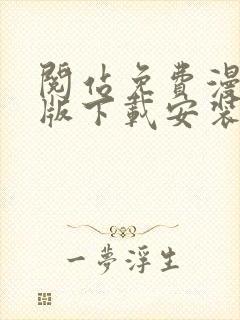 閱佔免費漫
版下載安裝
一夢浮生